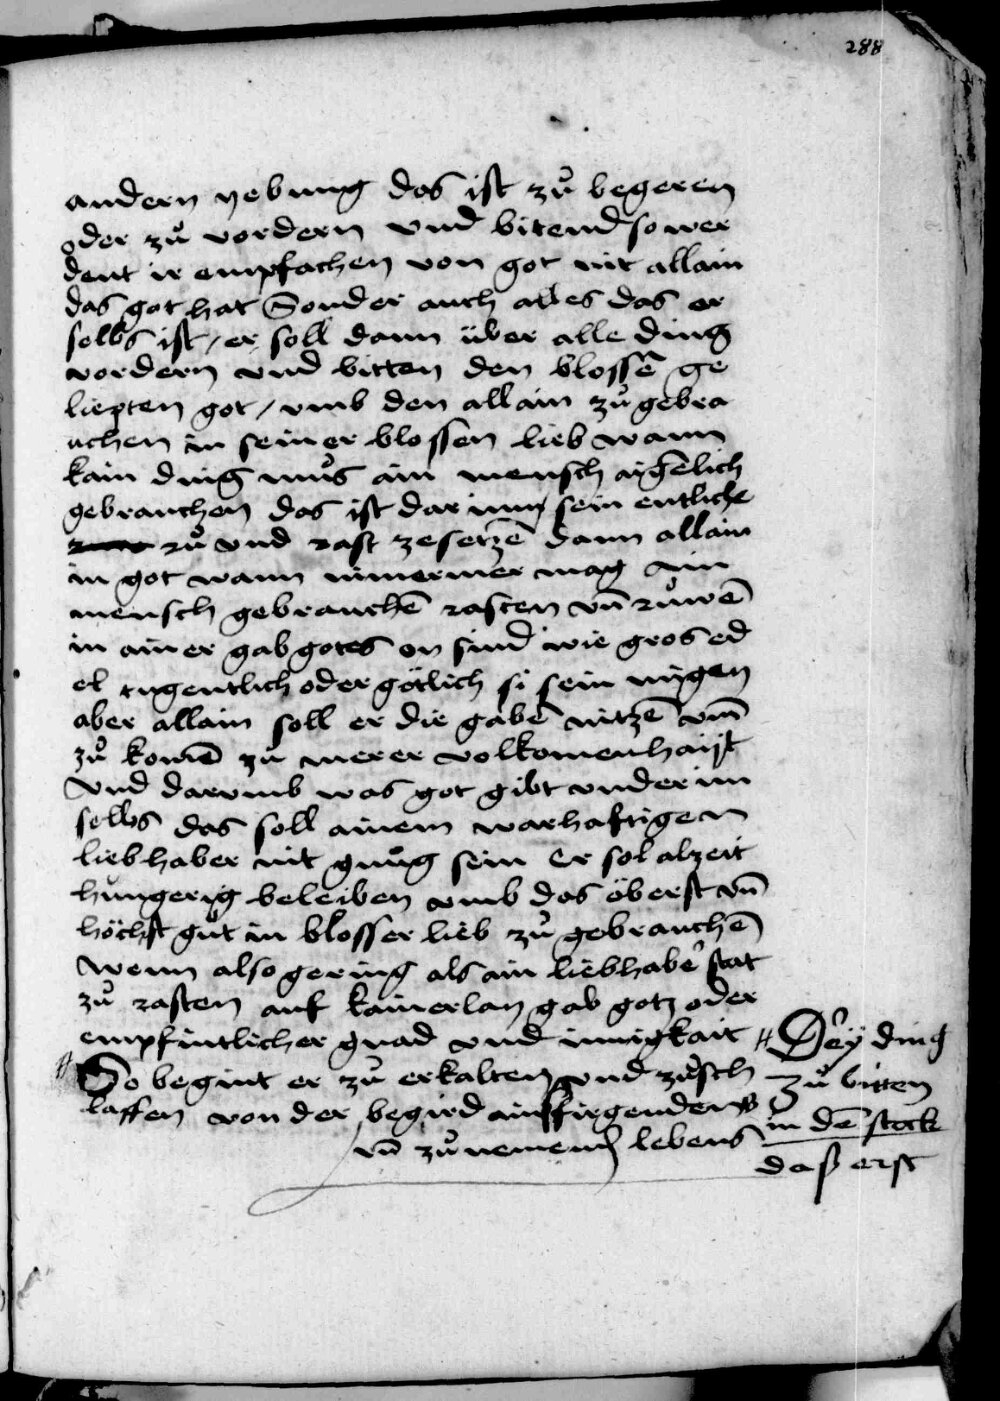 288
andern yebung das ist zů begeren
oder zů vordern vnd bitend so wer
dent ir empfachen von got nit allain
das got hat Sonder auch alles das er
selbs ist / er soll dann über alle ding
vordern vnd bitten den blossē ge
liepten got / vmb den allain zů gebra
uchen in seiner blossen lieb wann
kain ding můs ain mensch aigēlich
gebrauchen das ist dar inn sein entliche
rů vnd rast zesetzē dann allain
in got wann nimermer mag ain
mensch gebrauchē rasten vn̄ růwē
in ainer gab gotes on sind wie gros ed
el tugentlich oder götlich si sein mügen
aber allain soll er die gabē nützē vm̄
zů komē zů merer volkomenhaijt
Vnd darumb was got gibt vnder im
selbs das soll ainem warhaftigen
liebhaber nit gnůg sein Er sol alzeit
hungerig beleiben vmb das öberst vn̄
höchst gůt in blosser lieb zů gebrauchē
Wenn also gering als ain liebhabe͛ stat
zů rasten auf kainerlay gab gotz oder
empfintlicher gnad vnd innigkait
So begint er zů erkalten vnd zůsch
laffen von der begird ains firgenden
vn̄ zůnemend lebens
Drey ding
zů bitten
in dē stock
daß erst